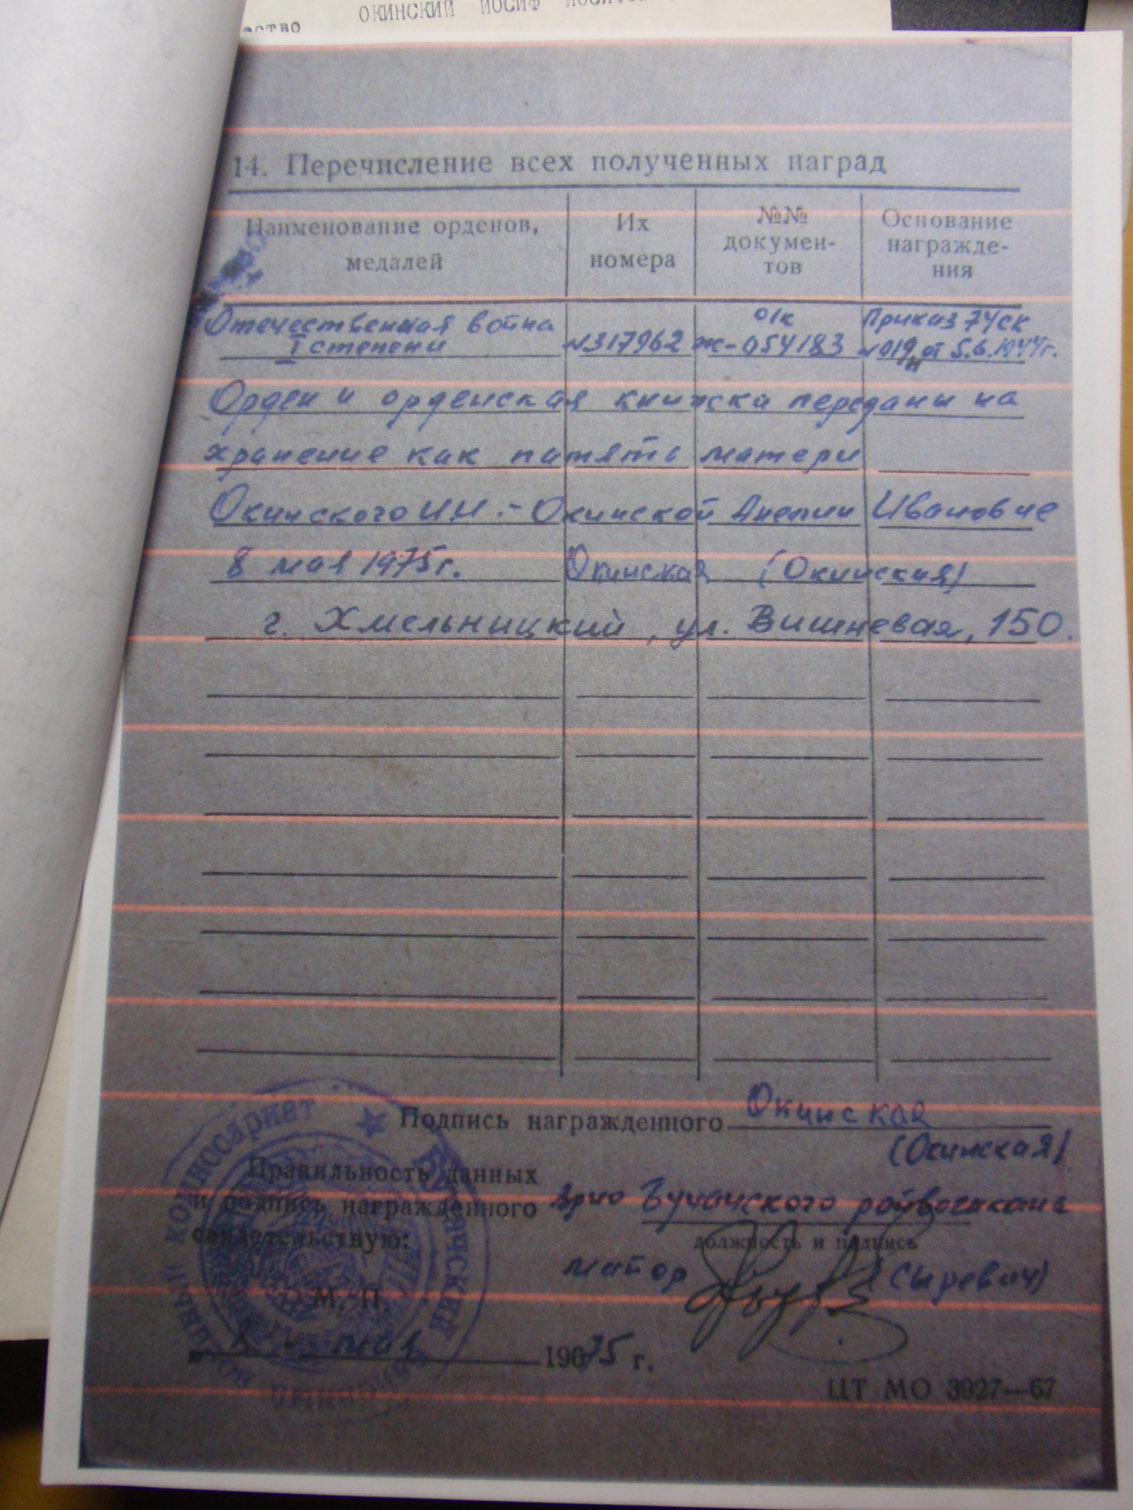 ОКИНСКИЙ ИОСИФ
ство
14. Перечисление всех полученных наград
Наименование орденов, медалей
Их номера
№№ документов
Основание награжде-
ния
Отечественная война
I степени
№317962
о/к
Ж-054183
Приказ 74СК
№019/н от 5.6.1944г.
Орден и орденская книжка переданы на
хранение как память матери
Окинского И.И. - Окинской Анелии Ивановне
8 мая 1975г. Окинская (Окинская)
г. Хмельницкий, ул. Вишневая, 150.
Подпись награжденного Окинская
(Окинская)
Правильность данных
и подпись награжденного
свидетельствую:
Врио Бучачского райвоенкома
должность и подпись
майор (Сыревич)
М. П.
„8" мая 1975 г.
ЦТ МО 3927—67
комиссариат ★ Бучачский